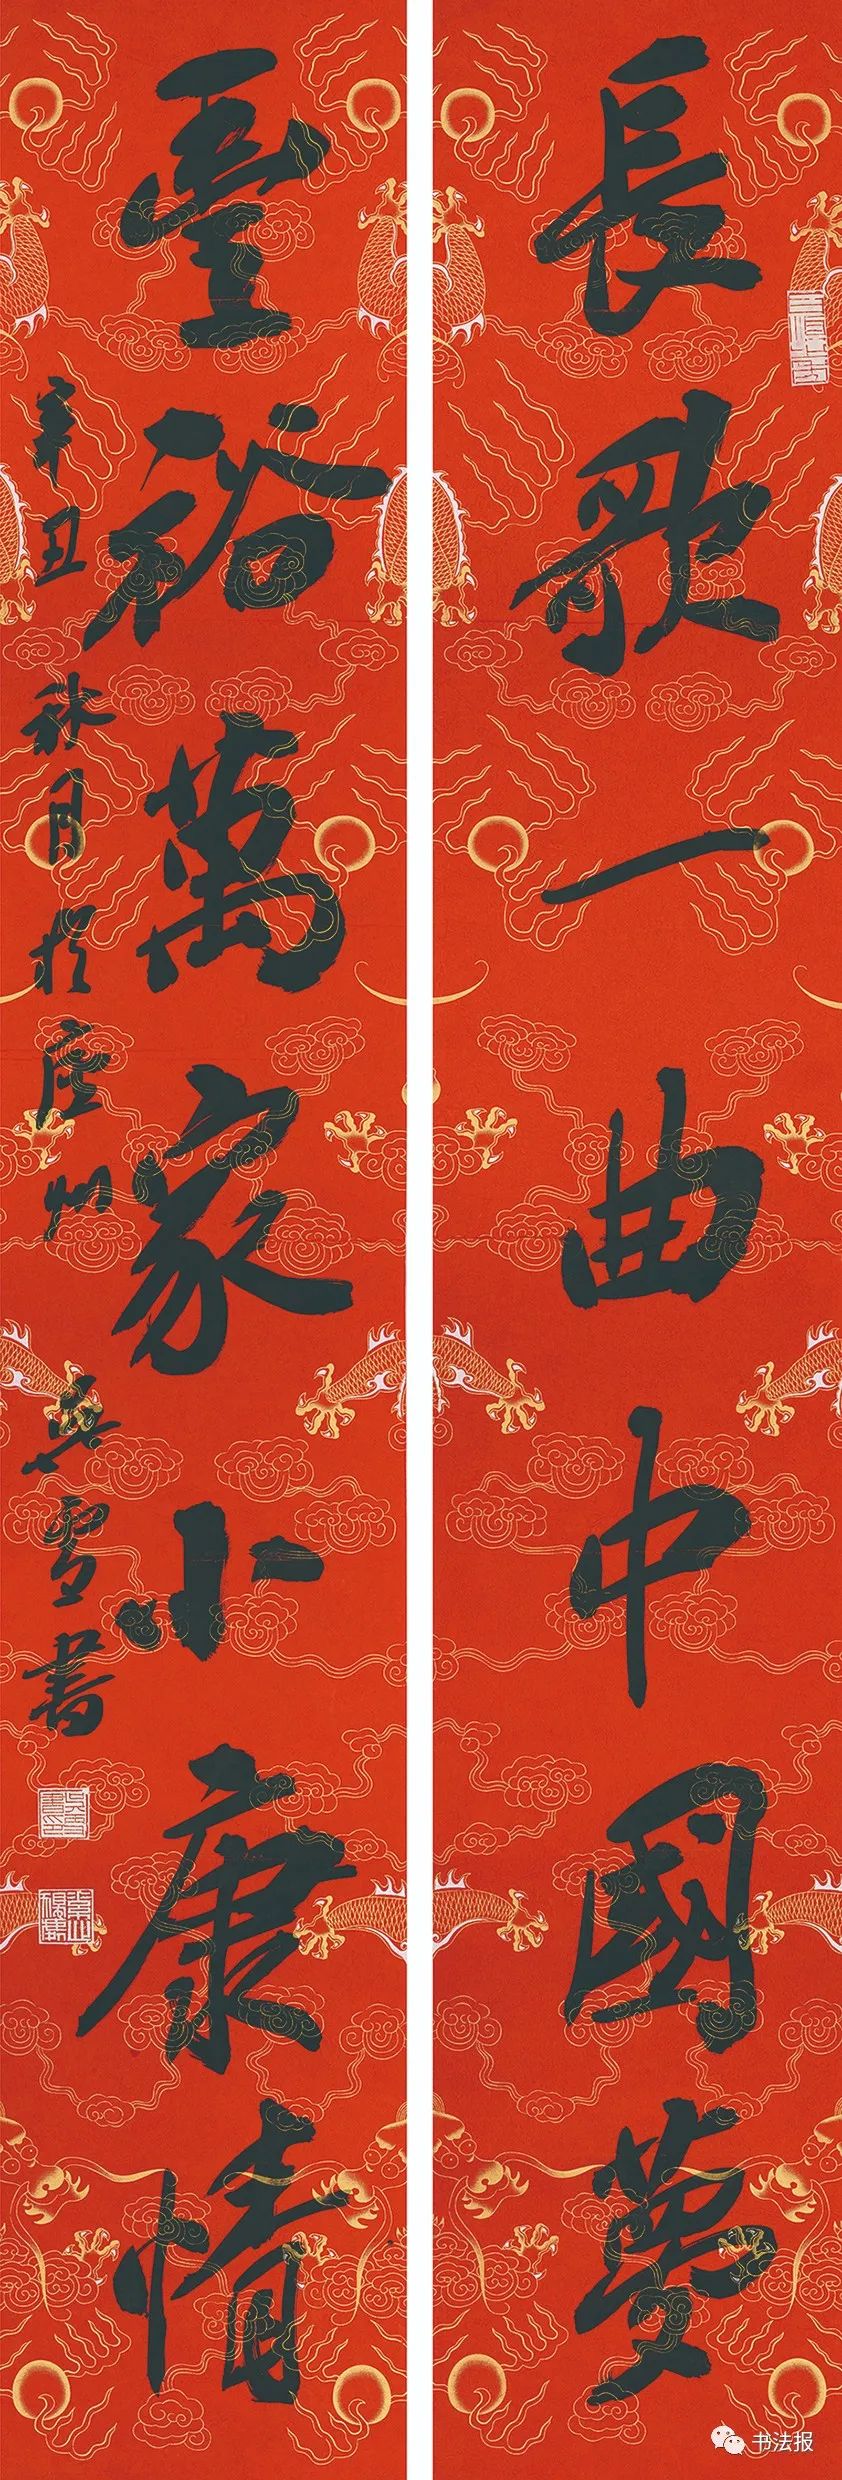 長歌一曲中國夢
豐裕萬家小康情
辛丑秋月於廬州
吴雪書
书法报